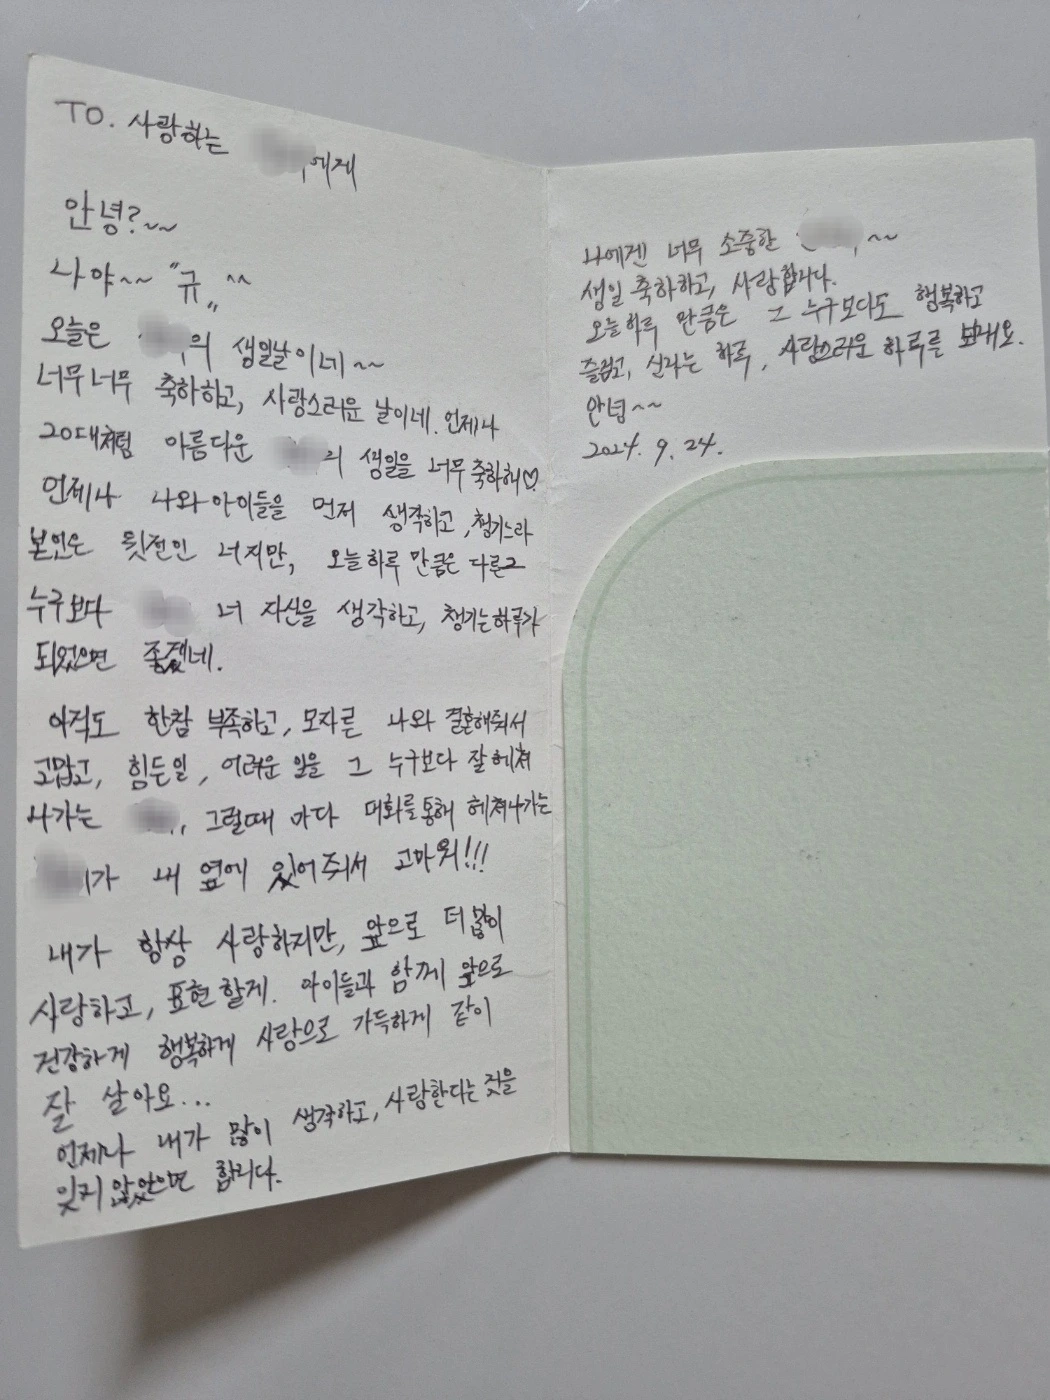 TO. 사랑하는 에게
안녕?~~
나야~~ "규„ ^^
오늘은 의 생일날이네~~
너무너무 축하하고, 사랑스러운 날이네. 언제나
20대처럼 아름다운 의 생일을 너무 축하해♡
언제나 나와 아이들을 먼저 생각하고, 챙기느라
본인은 뒷전인 너지만, 오늘하루 만큼은 다른 그
누구보다 너 자신을 생각하고, 챙기는 하루가
되었으면 좋겠네.
아직도 한참 부족하고, 모자른 나와 결혼해줘서
고맙고, 힘든일, 어려운 일을 그 누구보다 잘 헤쳐
나가는 , 그럴때 마다 대화를 통해 헤쳐나가는
가 내 옆에 있어줘서 고마워!!!
내가 항상 사랑하지만, 앞으로 더 많이
사랑하고, 표현할게. 아이들과 함께 앞으로
건강하게 행복하게 사랑으로 가득하게 같이
잘 살아요...
언제나 내가 많이 생각하고, 사랑한다는 것을
잊지 않았으면 합니다.
나에겐 너무 소중한 ~~
생일 축하하고, 사랑합니다.
오늘하루 만큼은 그 누구보다도 행복하고
즐겁고, 신나는 하루, 사랑스러운 하루를 보내요.
안녕~~
2024. 9. 24.